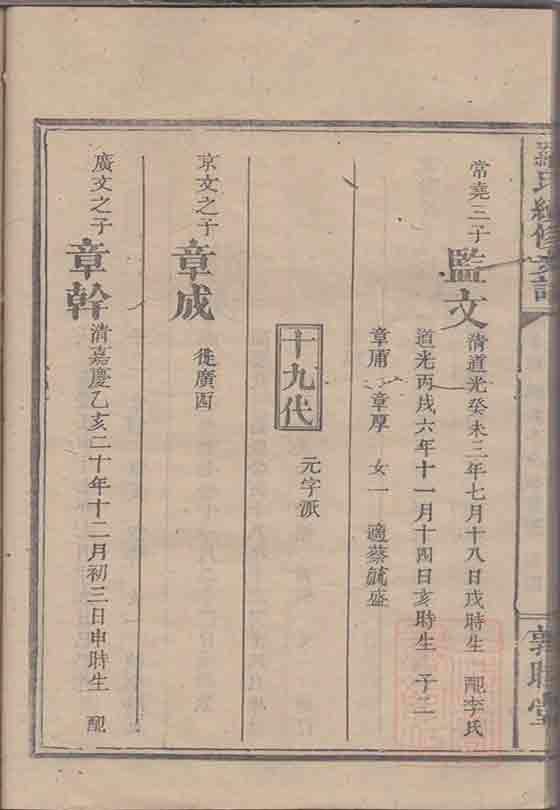 羅氏續修支譜
敦睦堂
常堯三子 監文 清道光癸未三年七月十八日戌時生 配李氏
道光丙戌六年十一月十四日亥時生 子二
章甫 章厚 女一 適蔡毓盛
十九代
元字派
京文之子 章成 徙廣西
廣文之子 章幹 清嘉慶乙亥二十年十二月初三日申時生 配